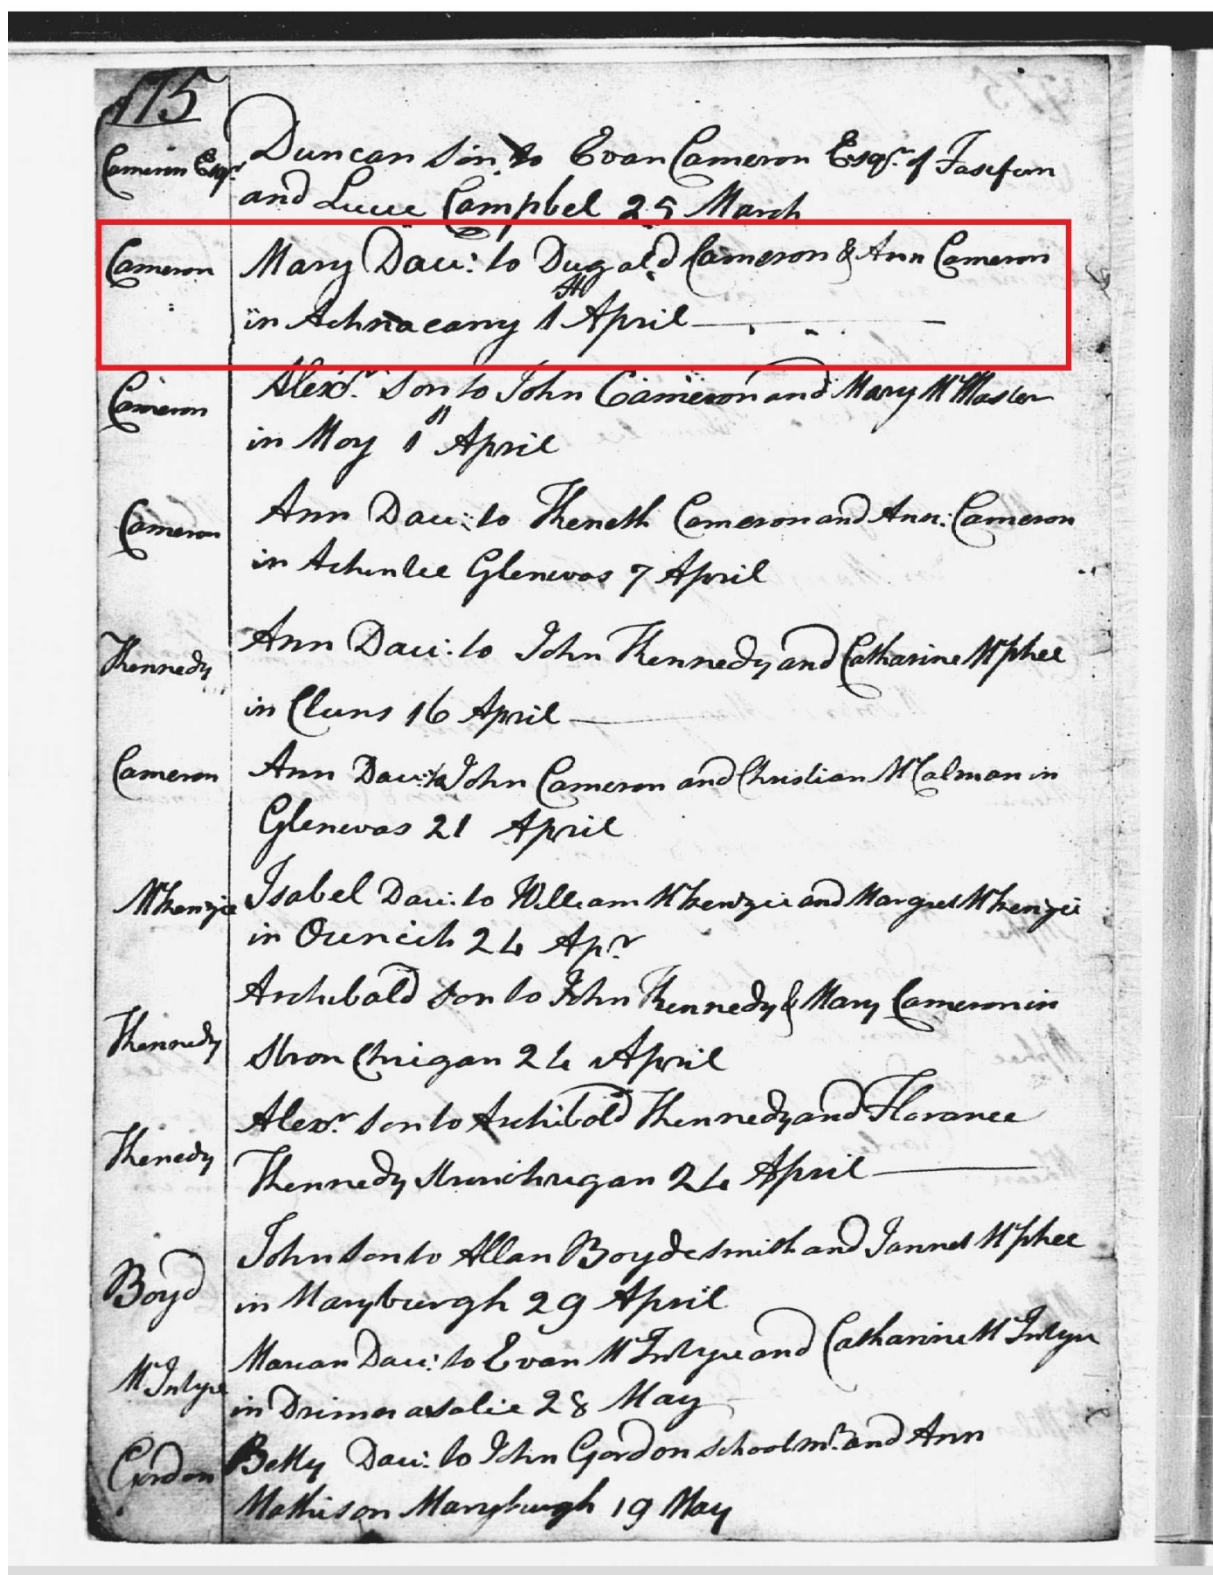 175
Cameron Esqr. Duncan Son to Evan Cameron Esqr. of Fasefern
and Lucie Campbel 25 March
Cameron Mary Dau: to Dugald Cameron & Ann Cameron
in Achnacarry 1st April
Cameron Alexr. Son to John Cameron and Mary McMaster
in Moy 1st April
Cameron Ann Dau: to Kheneth Cameron and Ann: Cameron
in Achinlee Glenevas 7 April
Khennedy Ann Dau: to John Khennedy and Catharine McPhee
in Cluns 16 April
Cameron Ann Dau: to John Cameron and Christian McCalman in
Glenevas 21 April
McKhenzie Isabel Dau: to William McKhenzie and Margret McKhenzie
in 24 Apr.
Khennedy Archibald Son to John Khennedy & Mary Cameron in
24 April
Khenedy Alexr. Son to Archibold Khennedy and Florance
Khennedy 24 April
Boyd John Son to Allan Boyde smith and Jannet McPhee
in Maryburgh 29 April
McIntyre Marian Dau: to Evan McIntyre and Catharine McIntyre
in 28 May
Gordon Betty Dau: to John Gordon schoolmr. and Ann
Mathison Maryburgh 19 May